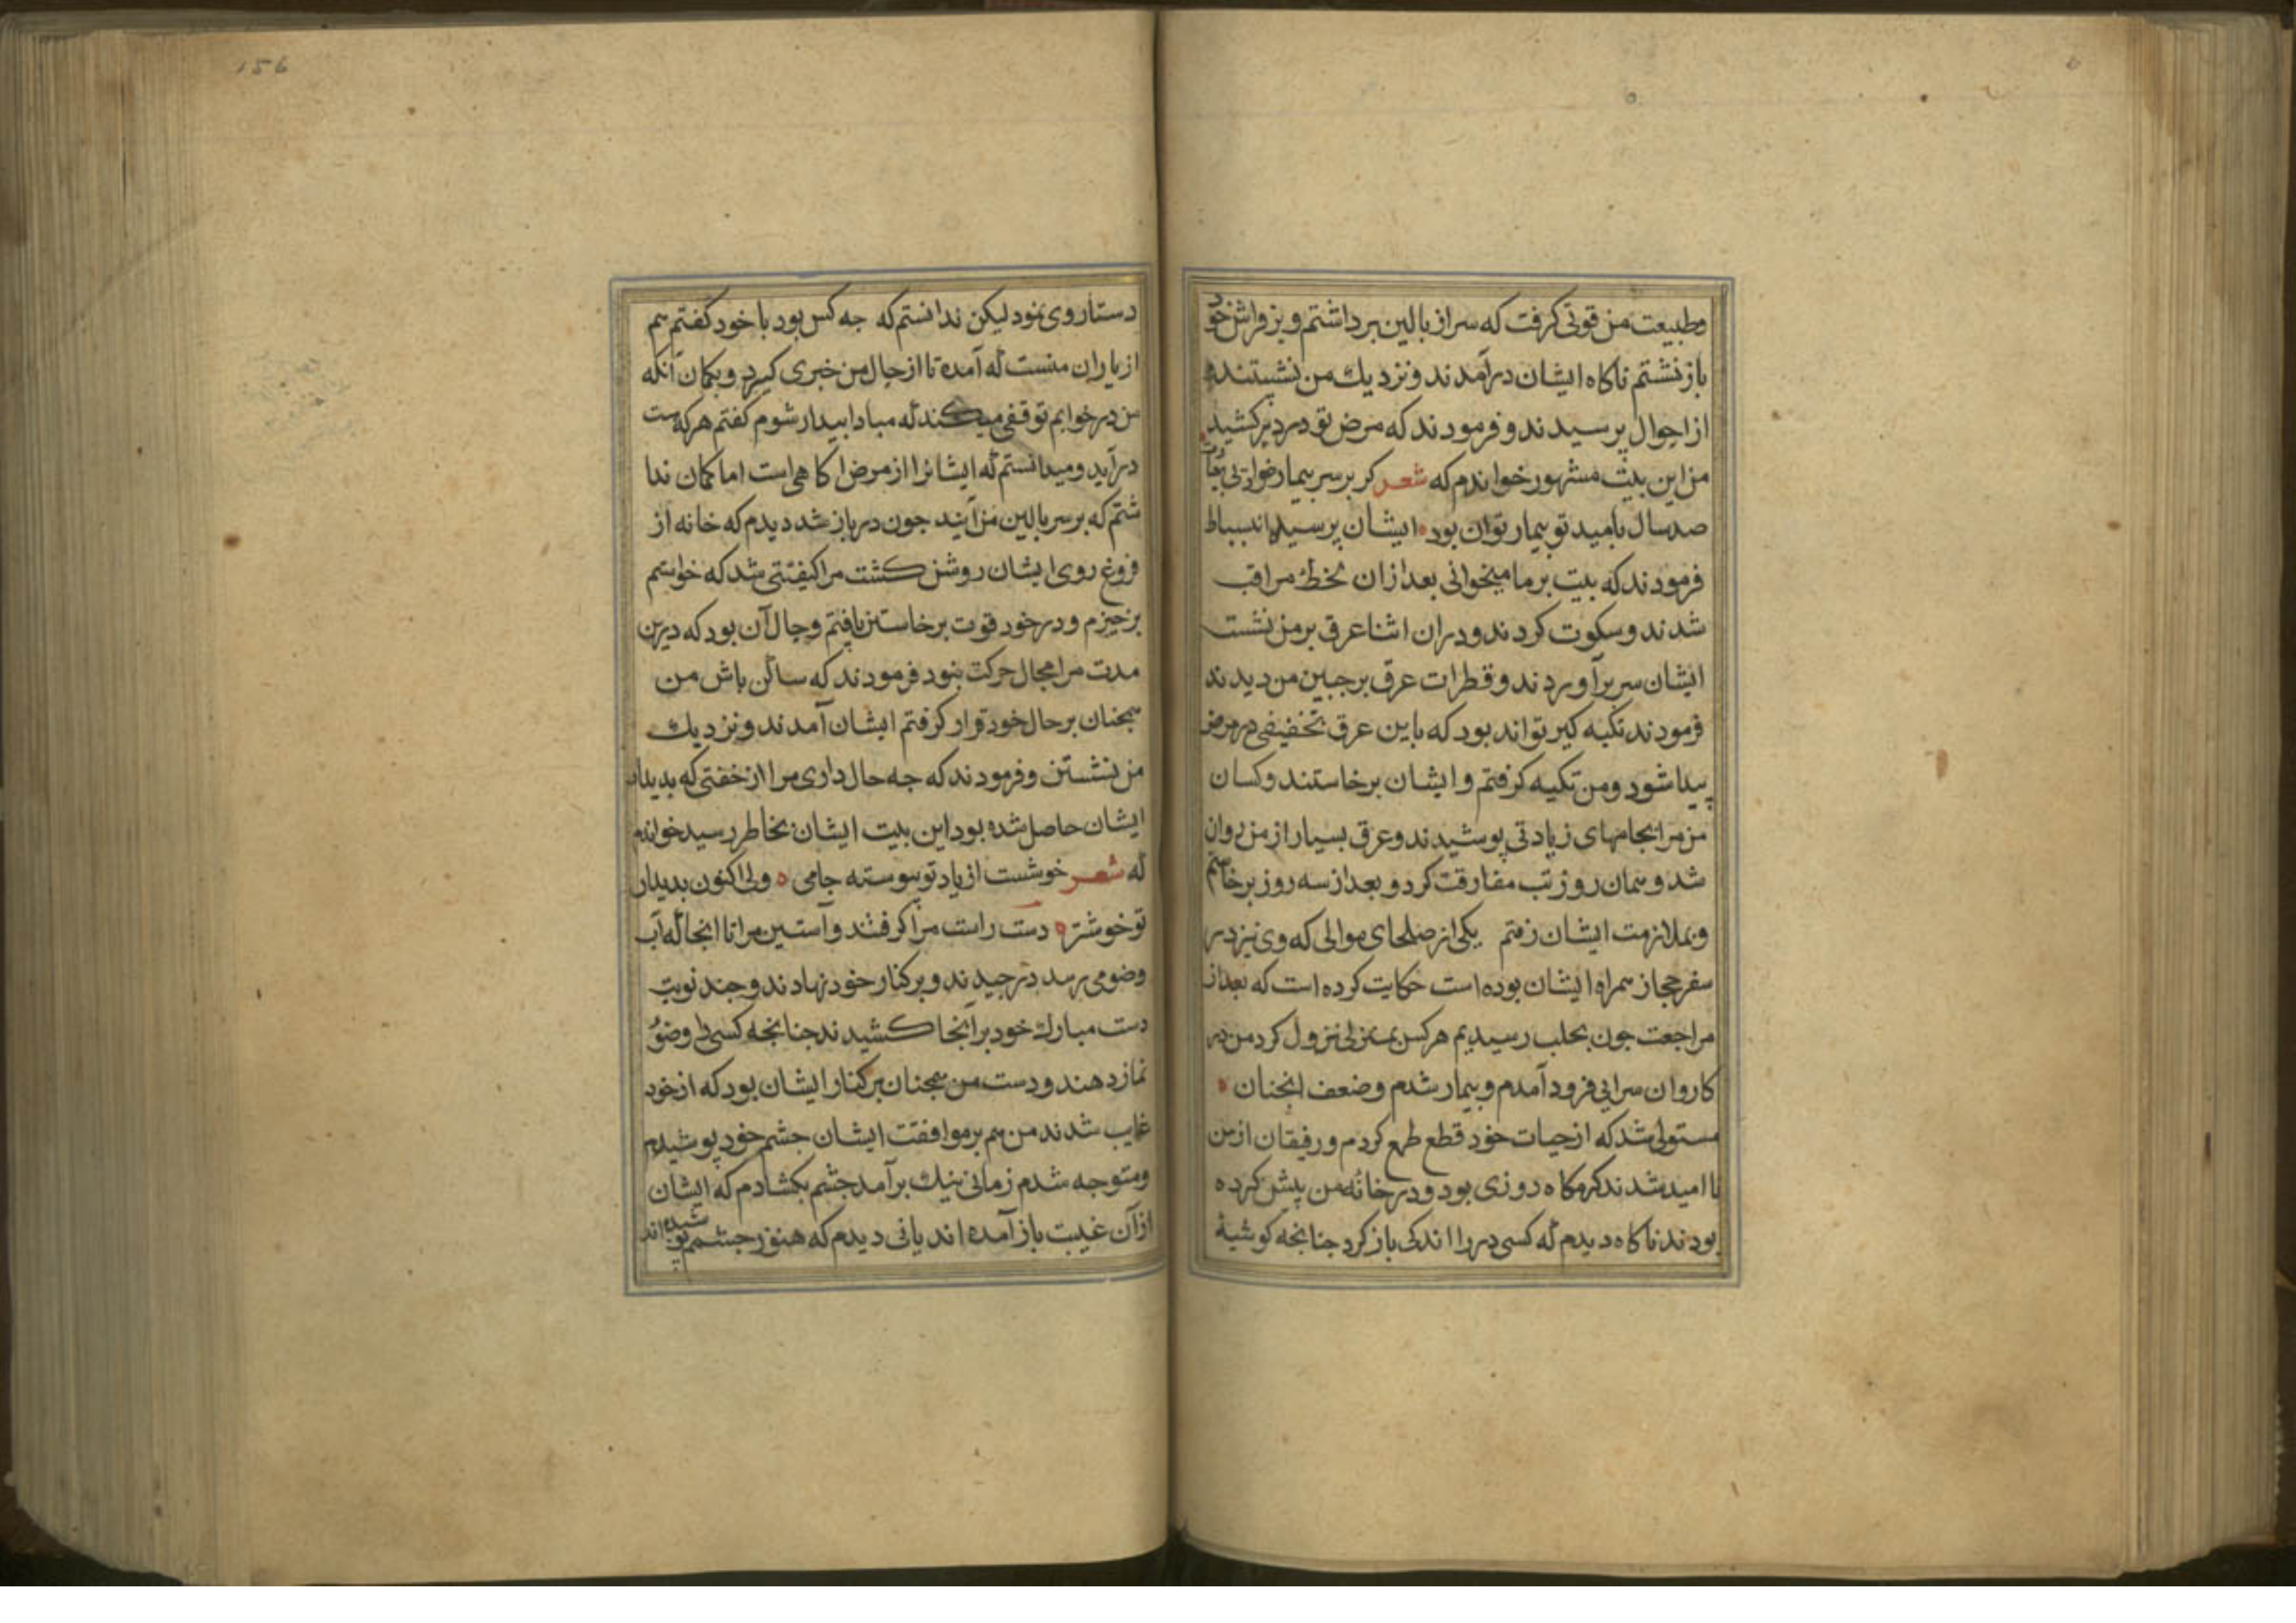 وطبیعت من قوتی گرفت که سر از بالین برداشتم و بر فراش خود
باز نشتم ناکاه ایشان درآمدند و نزدیك من نشستند و
از احوال پرسیدند و فرمودند که مرض تو دیر در کشید
من این بیت مشهور خواندم که شعر کر بر سر بیمار خود آیی بعیادت
صد سال بامید تو بیمار توان بود ایشان انبساط
فرمودند که بیت بر ما میخوانی بعد از ان مراقب
شدند و سکوت کردند و دران اثنا عرق بر من نشست
ایشان سر برآوردند و قطرات عرق بر جبین من دیدند
فرمودند تکیه کیر تواند بود که باین عرق تخفیفی در مرض
پیدا شود و من تکیه کرفتم و ایشان برخاستند و کسان
من مرا بجامهای زیادتی پوشیدند و عرق بسیار از من روان
شد و همان روز تب مفارقت کرد و بعد از سه روز برخاستم
و بملازمت ایشان رفتم یکی از صلحای موالی که وی نیز در
سفر حجاز همراه ایشان بوده است حکایت کرده است که بعد از
مراجعت جون بحلب رسیدیم هر کس بمنزلی نزول کرد من در
کاروان سرایی فرود آمدم و بیمار شدم و ضعف انجنان
مستولی شد که از حیات خود قطع طمع کردم و رفیقان از من
نا امید شدند کرمکاه روزی بود و در خانه من پیش کرده
بودند ناکاه دیدم که کسی در را اندکی باز کرد جنانجه کوشهٔ
156
دستار وی نمود لیکن ندانستم که جه کس بود با خود کفتم هم
از یاران منست که آمده تا از حال من خبری کیرد و بکمان آنکه
من در خوابم توقفی میکند که مبادا بیدار شوم کفتم هر که هست
درآید و میدانستم که ایشانرا از مرض اکاهی است اما کمان ندا
شتم که بر سر بالین من آیند جون در باز شد دیدم که خانه از
فروغ روی ایشان روشن کشت مرا کیفیتی شد که خواستم
برخیزم و در خود قوت برخاستن یافتم و حال آن بود که درین
مدت مرا مجال حرکت نبود فرمودند که ساکن باش من
همجنان بر حال خود قرار کرفتم ایشان آمدند و نزدیك
من نشستن و فرمودند که جه حال داری مرا از خفتی که بدیدار
ایشان حاصل شده بود این بیت ایشان بخاطر رسید خواندم
که شعر خوشست از یاد تو پیوسته جامی ولی اکنون بدیدار
تو خوشتر دست راست مرا کرفتند و آستین مرا تا انجا که آب
وضو می رسد برجیدند و بر کنار خود نهادند و جند نوبت
دست مبارك خود بر آنجا کشیدند جنانجه کسی را وضوُ
نماز دهند و دست من همجنان بر کنار ایشان بود که از خود
غایب شدند من هم بر موافقت ایشان جشم خود پوشیدم
و متوجه شدم زمانی نیك برآمد جشم بکشادم که ایشان
از آن غیبت باز آمده اند یا نی دیدم که هنوز جشم پوشیده اند